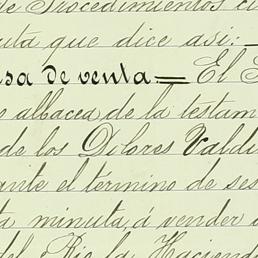 de Procedimientos ci
uta que dice asi:
sa de venta. = El S
e albacea de la testam
de los Dolores Valdi
ante el término de ses
ta minuta, á vender á
del Rio la Haciend